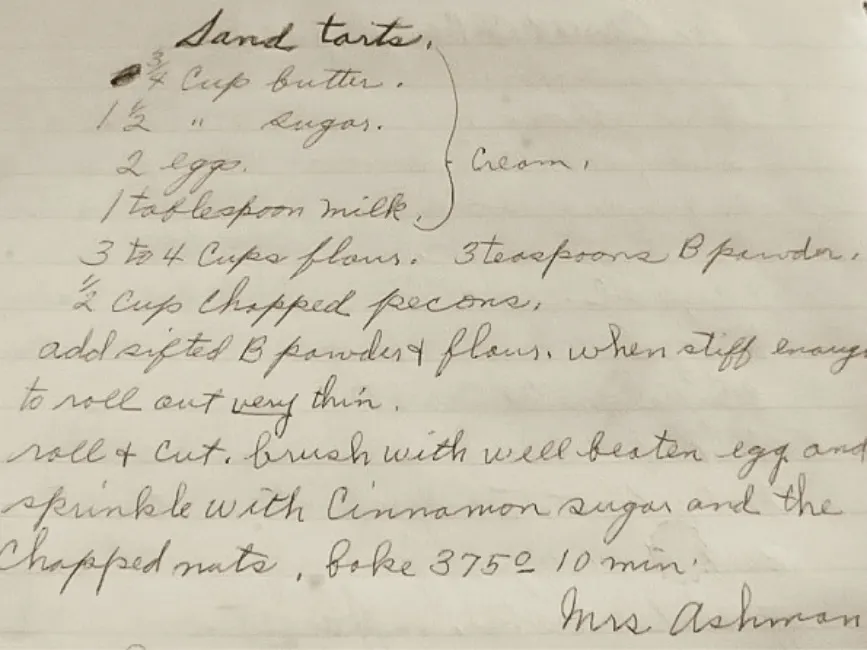 Sand tarts.
3/4 Cup butter.
1 1/2 " sugar.
2 eggs.
Cream.
1 tablespoon milk.
3 to 4 Cups flour. 3 teaspoons B powder.
1/2 Cup Chopped pecans.
add sifted B powder & flour. when stiff enough
to roll out very thin.
roll & cut. brush with well beaten egg and
sprinkle with Cinnamon sugar and the
Chopped nuts, bake 375º 10 min.
Mrs Ashman